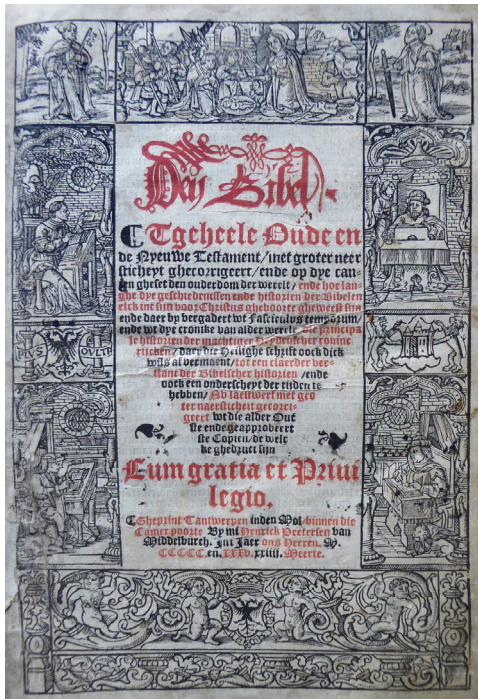 Den Bibel.
Tgeheele Oude en
de Nyeuwe Testament/met groter neer
sticheyt ghecorrigeert/ende op dye can-
ten gheset den ouderdom der werelt/ ende hoe lan-
ghe dye geschiedenissen ende historien der Bibelen
elck int sijn voor Christus gheboorte gheweest sijn
ende daer by vergadert tot Fasciculus temporum,
ende wt dye cronike van alder werelt/ die principa
le historien der machtiger Heydenscher coninc
rijcken/ daer die Heilighe schrift oock dick
wils af vermaent/tot een claerder ver-
stant der Bibelscher historien /ende
oock een onderscheyt der tijden te
hebben/ Nv laetstwerf met gro
ter naersticheit gecorri-
geert wt die alder Out
ste ende geapprobeert
ste Copien/de welc
ke ghedruct sijn
Cum gratia et Priui
legio.
DIVS
QVLPT
Gheprint Tantwerpen inden Mol/binnen die
Camer poorte By mi Henrick Peetersen van
Middelburch. Int Jaer ons Heeren. M.
CCCCC. en. XXXv. xxiiij. Meerte.